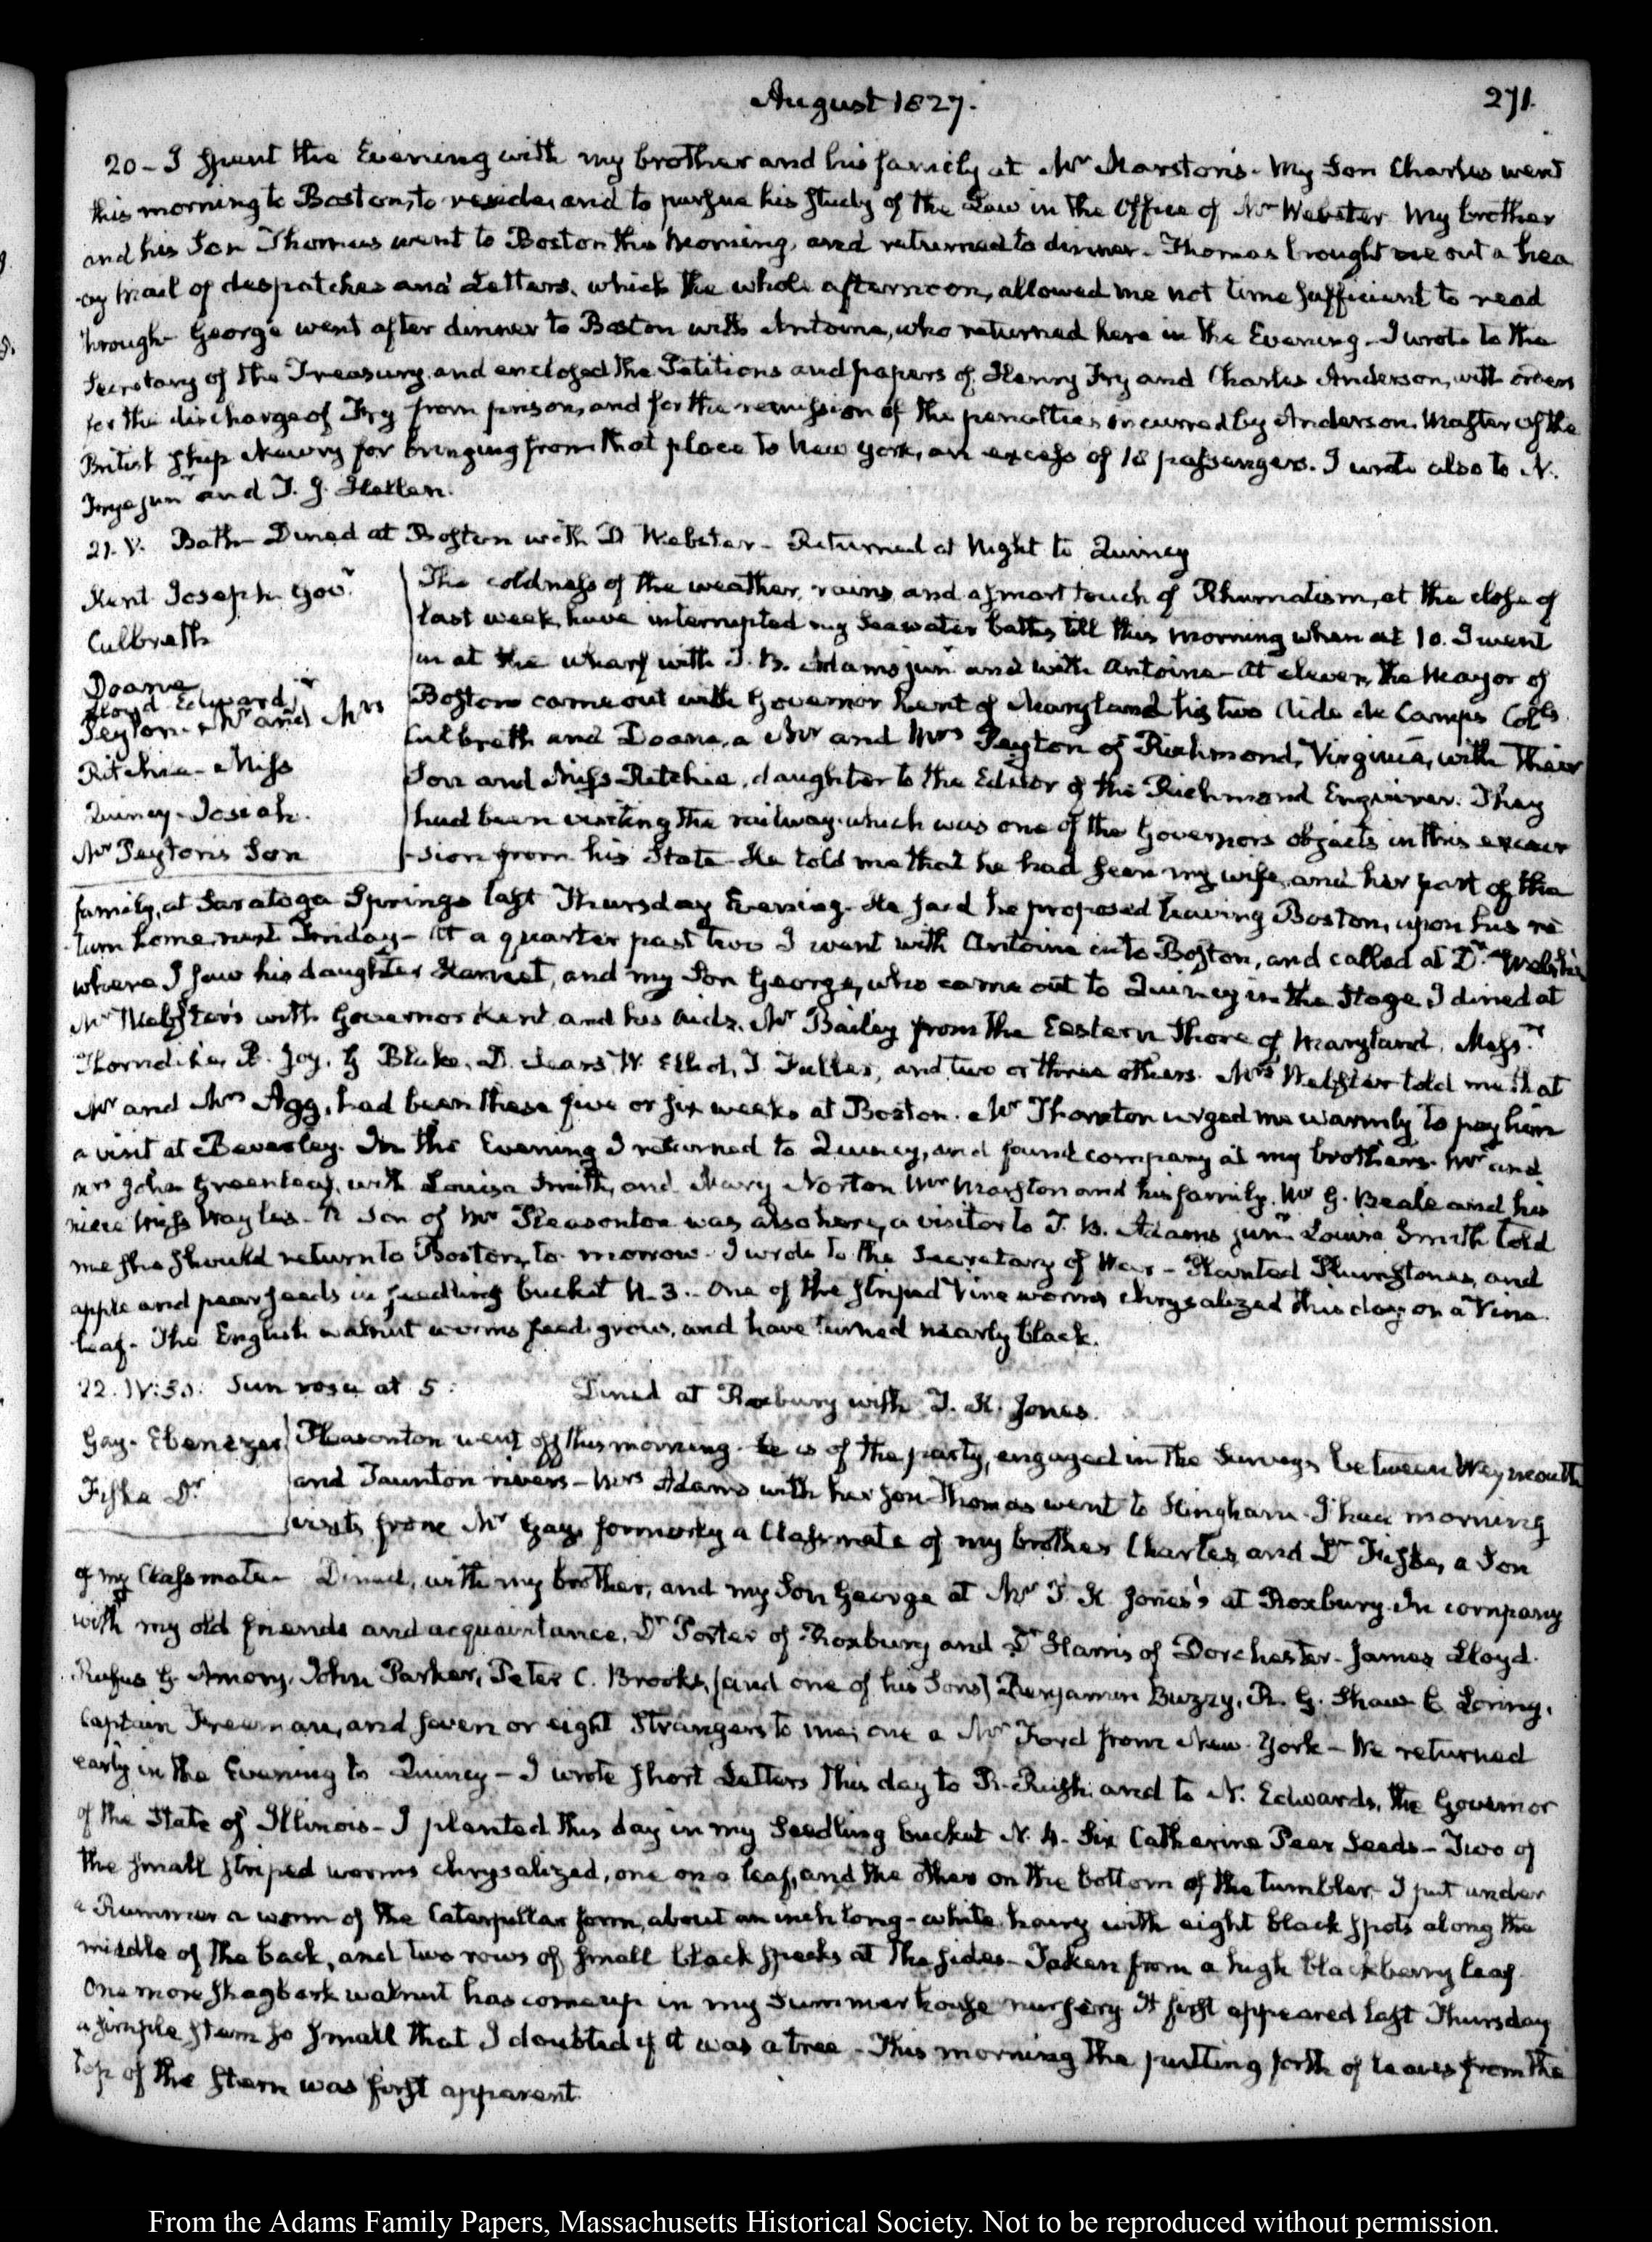 August 1827.
271.
20 - I spent the Evening with my brother and his family at Mr Marston's. My Son Charles went
this morning to Boston, to reside, and to pursue his study of the Law in the Office of Mr Webster. My brother
and his Son Thomas went to Boston this morning, and returned to dinner. Thomas brought me out a hea
vy mail of despatches and Letters, which the whole afternoon, allowed me not time sufficient to read
through. George went after dinner to Boston with Antoine, who returned here in the Evening. I wrote to the
Secretary of the Treasury and enclosed the Petitions and papers of Henry Fry and Charles Anderson, with orders
for the discharge of Fry from prison, and for the remission of the penalties incurred by Anderson, Master of the
British Ship Newry for bringing from that place to New York, an excess of 18 passengers. I wrote also to N.
Frye junr and T. J. Hellen.
21. V. Bath - Dined at Boston with D Webster - Returned at Night to Quincy
Kent Joseph Govr
Culbreth
Doane
Lloyd Edward jr
Peyton - Mr and Mrs
Ritchie - Miss
Quincy - Josiah.
Mr Peyton's Son
The coldness of the weather, rains, and a smart touch of Rhumatism, at the close of
last week, have interrupted my Seawater baths till this morning when at 10. I went
in at the wharf with J. B. Adams junr and with Antoine - At eleven, the Mayor of
Boston came out with Governor Kent of Maryland his two Aide de Camps Cols
Culbreth and Doane, a Mr and Mrs Peyton of Richmond, Virginia, with their
Son and Miss Ritchie, daughter to the Editor of the Richmond Enquirer. They
had been visiting the railway which was one of the Governors objects in this excur
-sion from his State. He told me that he had seen my wife, and her part of the
family, at Saratoga Springs last Thursday Evening. He said he proposed leaving Boston, upon his re
turn home, next Friday - At a quarter past two I went with Antoine into Boston, and called at Dr Welsh's
where I saw his daughter Harriet, and my Son George, who came out to Quincy in the Stage. I dined at
Mr Webster's with Governor Kent and his Aids, Mr Bailey from the Eastern Shore of Maryland, Messr
Thorndike, B. Joy, G Blake, D. Sears, W. Elliot, T. Fuller, and two or three others. Mrs Webster told me that
Mr and Mrs Agg, had been these five or six weeks at Boston. Mr Thornton urged me warmly to pay him
a visit at Beverley. In the Evening I returned to Quincy, and found company at my brother's. Mr and
Mrs John Greenleaf, with Louisa Smith, and Mary Norton, Mr Marston and his family. Mr G. Beale and his
niece Miss Wayles - A Son of Mr Pleasonton was also here, a visitor to J. B. Adams junr. Louisa Smith told
me she should return to Boston, to-morrow. I wrote to the Secretary of War - Planted Plumstones, and
apple and pear seeds in seedling bucket N. 3. - One of the striped Vine worms chrysalized this day on a Vine
leaf. The English walnut worms feed, grow, and have turned nearly black.
22. IV:30: Sun rose at 5: Dined at Roxbury with T. K. Jones.
Gay - Ebenezer
Fiske Dr
Pleasonton went off this morning. he is of the party, engaged in the Surveys between Weymouth
and Taunton rivers - Mrs Adams with her Son Thomas went to Hingham. I had morning
visits from Mr Gay, formerly a Classmate of my brother Charles, and Dr Fiske, a Son
of my Classmate - Dined, with my brother, and my Son George at Mr T. K Jones's at Roxbury. In company
with my old friends and acquaintance, Dr Porter of Roxbury and Dr Harris of Dorchester - James Lloyd.
Rufus G. Amory, John Parker, Peter C. Brooks, (and one of his Sons) Benjamin Bussy, R. G. Shaw C Loring,
Captain Freeman, and seven or eight Strangers to me; one a Mr Ford from New-York - We returned
early in the Evening to Quincy - I wrote short Letters this day to R. Rush and to N. Edwards, the Governor
of the State of Illinois - I planted this day in my Seedling bucket N. 4. Six Catherine Pear Seeds - Two of
the small striped worms chrysalized, one on a leaf, and the other on the bottom of the tumbler. I put under
a Rummer a worm of the Caterpillar form, about an inch long - white, hairy with eight black spots along the
middle of the back, and two rows of small black specks at the sides - Taken from a high blackberry leaf.
One more shagbark walnut has come up in my Summer house nursery. It first appeared last Thursday
a simple stem so small that I doubted if it was a tree - This morning the putting forth of leaves from the
top of the stem was first apparent.
From the Adams Family Papers, Massachusetts Historical Society. Not to be reproduced without permission.